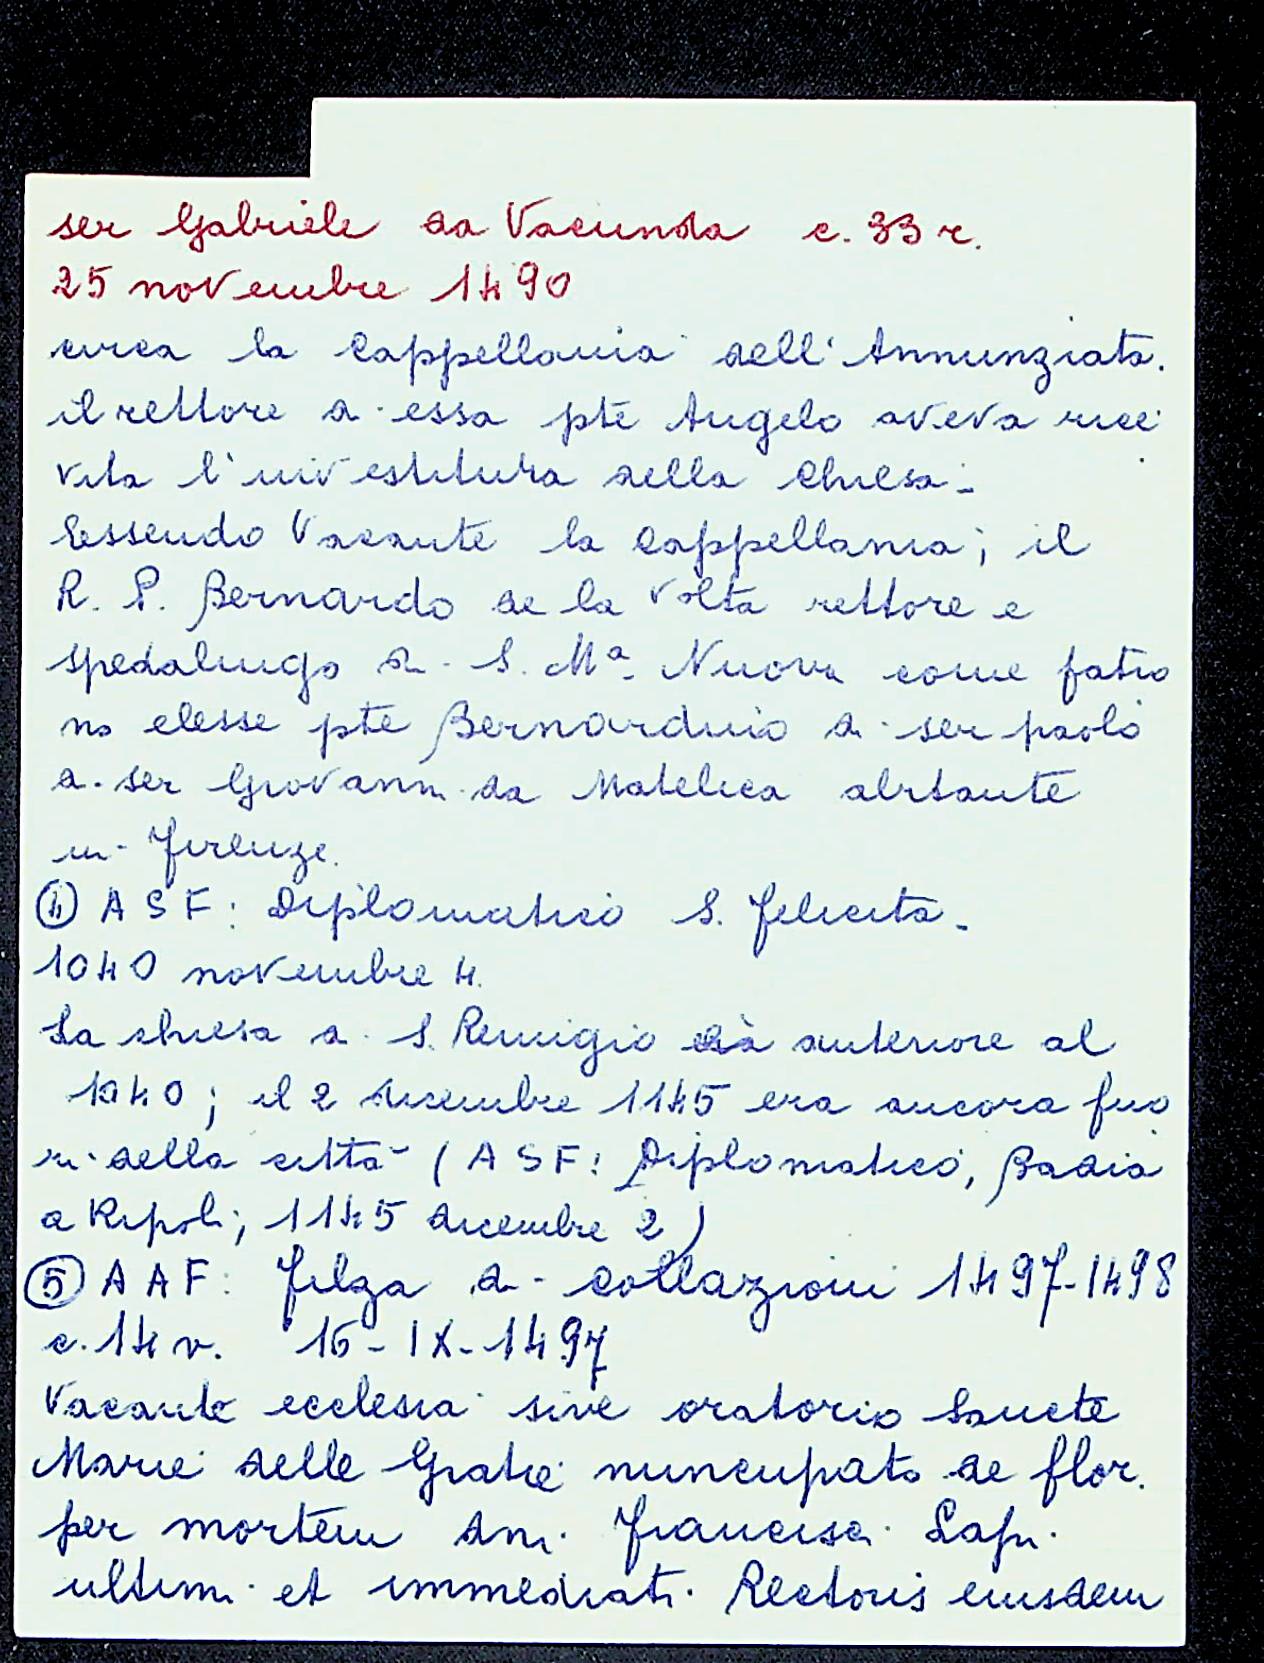 ser Gabriele da Vacunda c. 33 r.
25 novembre 1490
circa la Cappellania dell'Annunziata.
il rettore di essa pte Angelo aveva rice
vuta l'investitura della Chiesa.
Essendo Vacante la Cappellania; il
R. P. Bernardo de la Volta rettore e
spedalingo di S. Mª. Nuova come patro
no elesse pte Bernardino di ser paolo
di ser Giovanni da Matelica abitante
in Firenze.
④ A S F: Diplomatico S. Felicita.
1040 novembre 4.
La chiesa di S. Remigio già anteriore al
1040; il 2 dicembre 1145 era ancora fuo
ri della città (A S F: Diplomatico, Badia
a Ripoli, 1145 dicembre 2)
⑤ A A F: Filza di collazioni 1497-1498
c. 14 v. 16-IX-1497
Vacante ecclesia sive oratorio Sancte
Marie delle Gratie nuncupato de flor.
per mortem dni. Francisci Lapi
ultimi et immediati Rectoris eiusdem